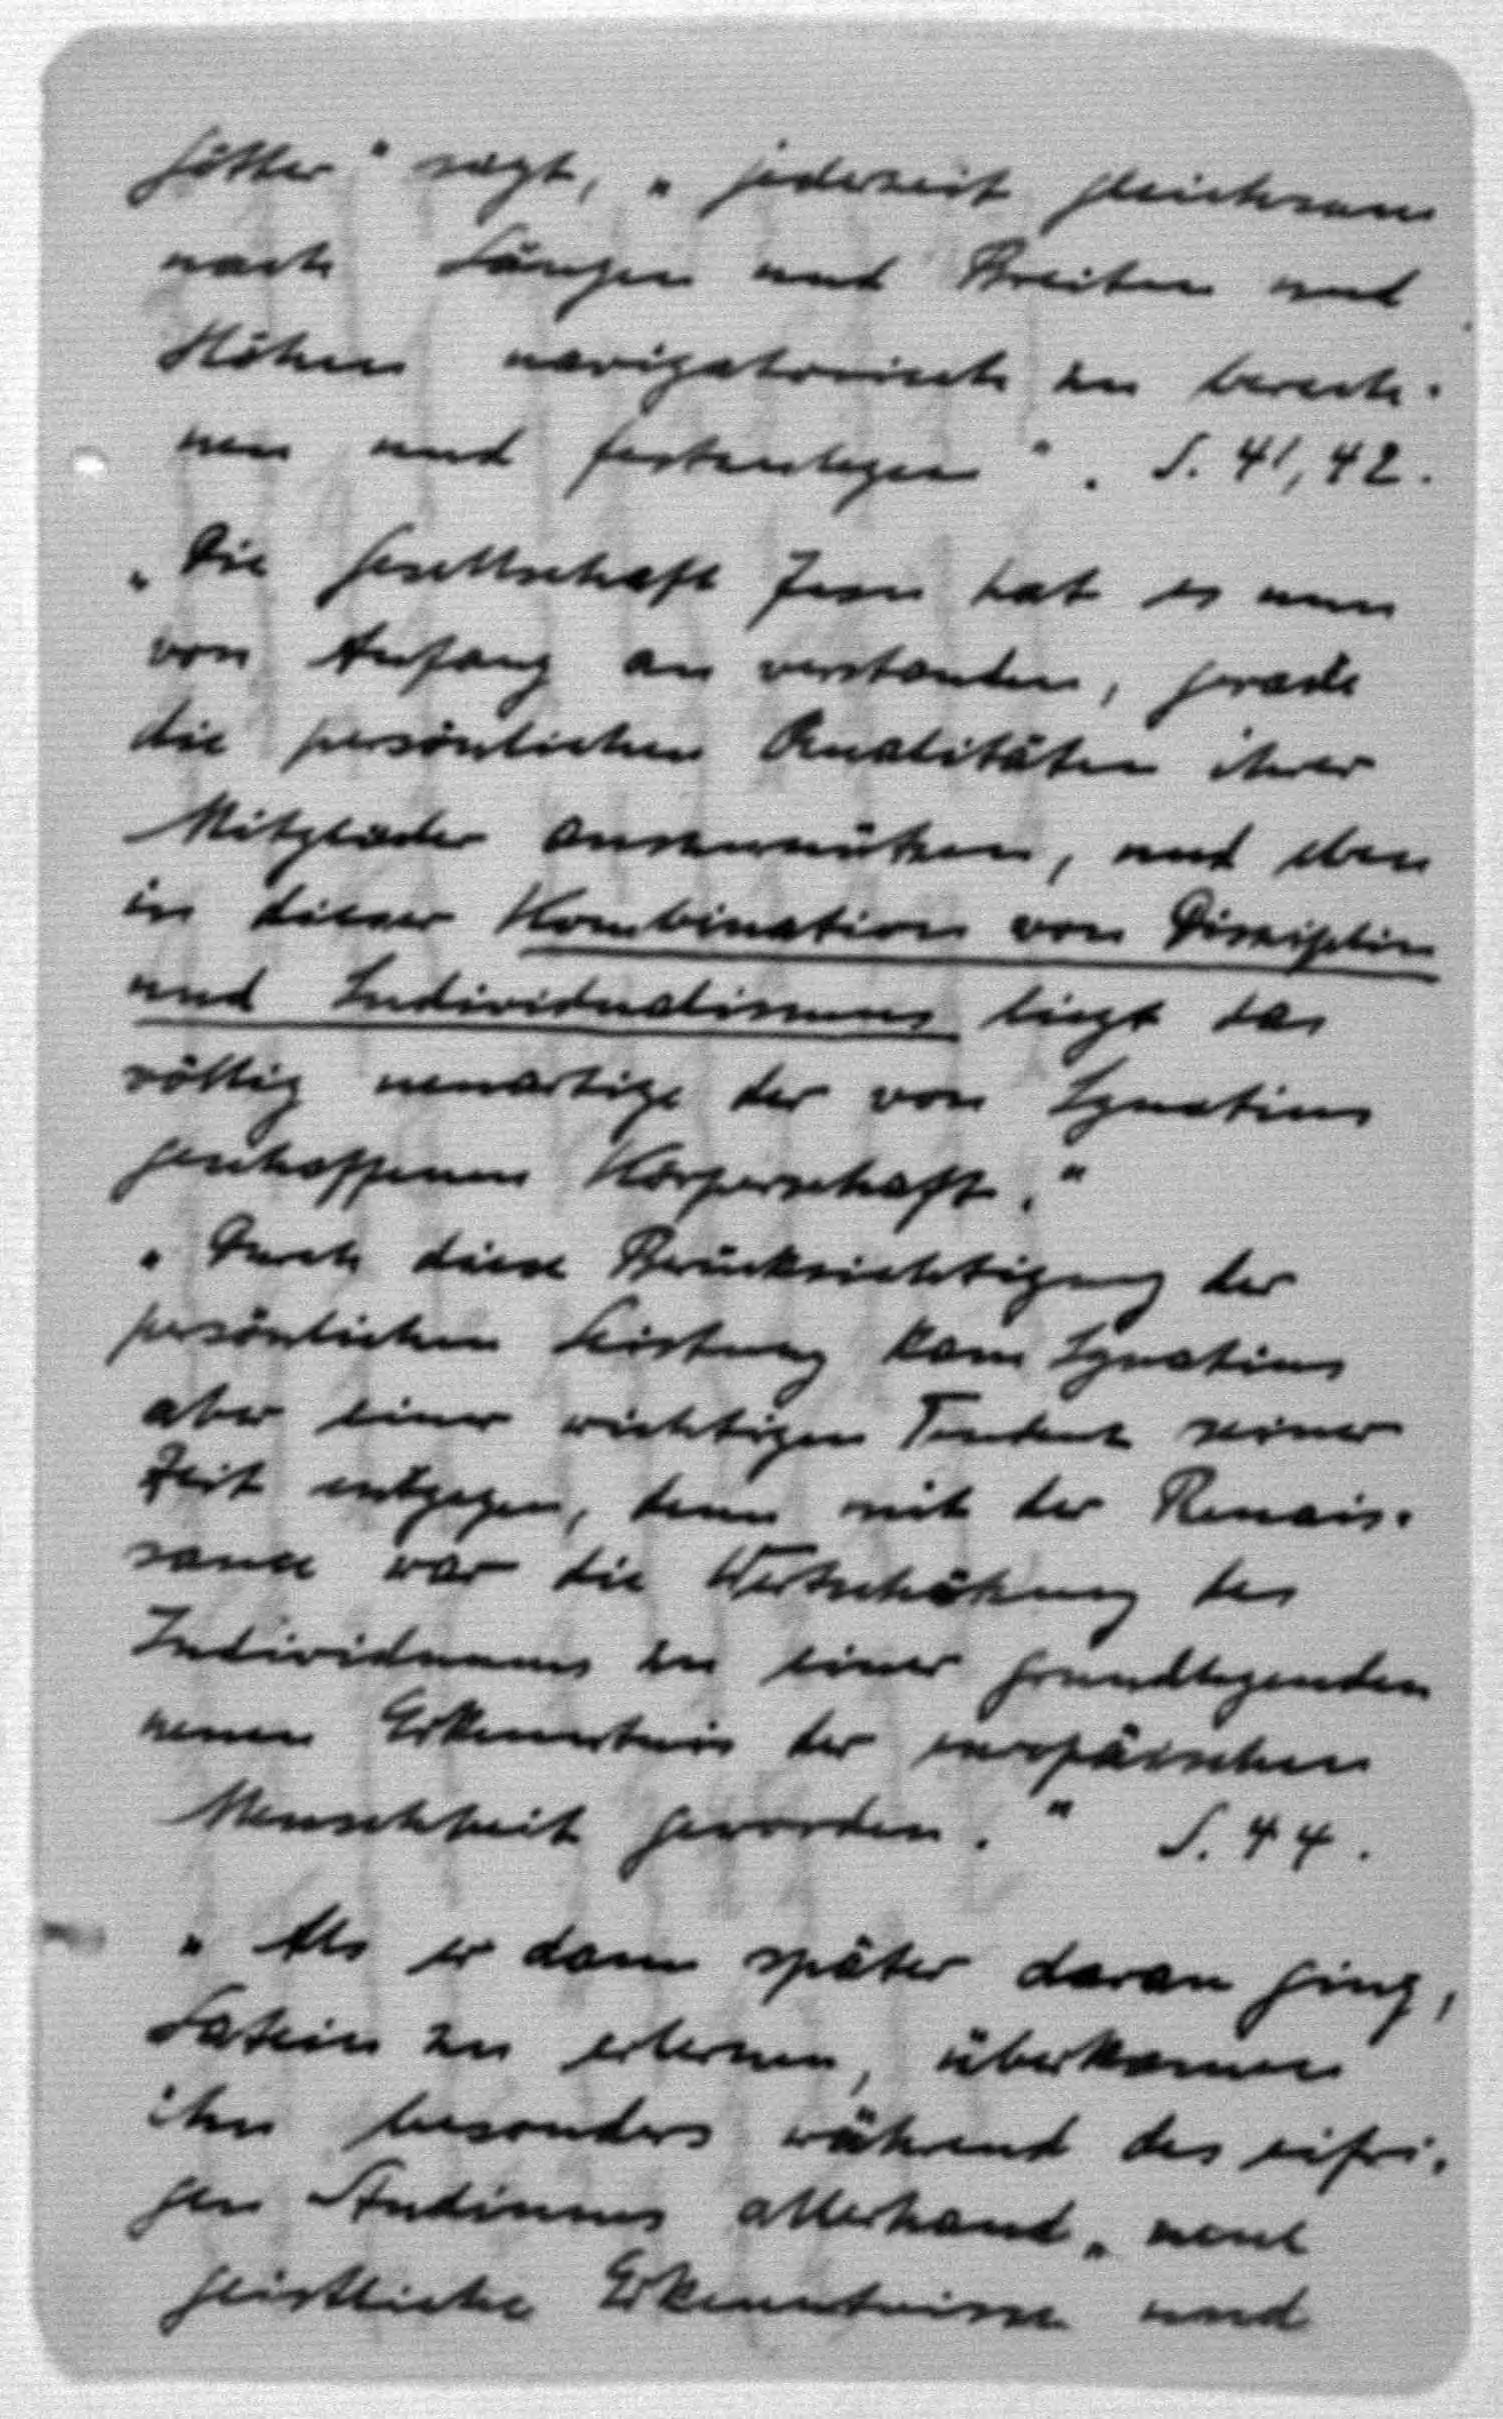 Götter" sagt, „jederzeit gleichsam
nach Längen und Breiten und
Höhen navigatorisch zu berech-
nen und festzulegen". S. 41, 42.
„Die Gesellschaft Jesu hat es nun
von Anfang an verstanden, gerade
die persönlichen Qualitäten ihrer
Mitglieder auszunützen, und eben
in dieser Kombination von Disziplin
und Individualismus liegt das
völlig neuartige der von Ignatius
geschaffenen Körperschaft."
„Durch diese Berücksichtigung der
persönlichen Leistung kam Ignatius
aber einer wichtigen Tendenz seiner
Zeit entgegen, denn mit der Renais-
sance war die Wertschätzung des
Individuums zu einer grundlegenden
neuen Erkenntnis der europäischen
Menschheit geworden." S. 44.
„Als er dann später daran ging,
Latein zu erlernen, überkamen
ihn besonders während des eifri-
gen Studiums allerhand „neue
geistliche Erkenntnisse und